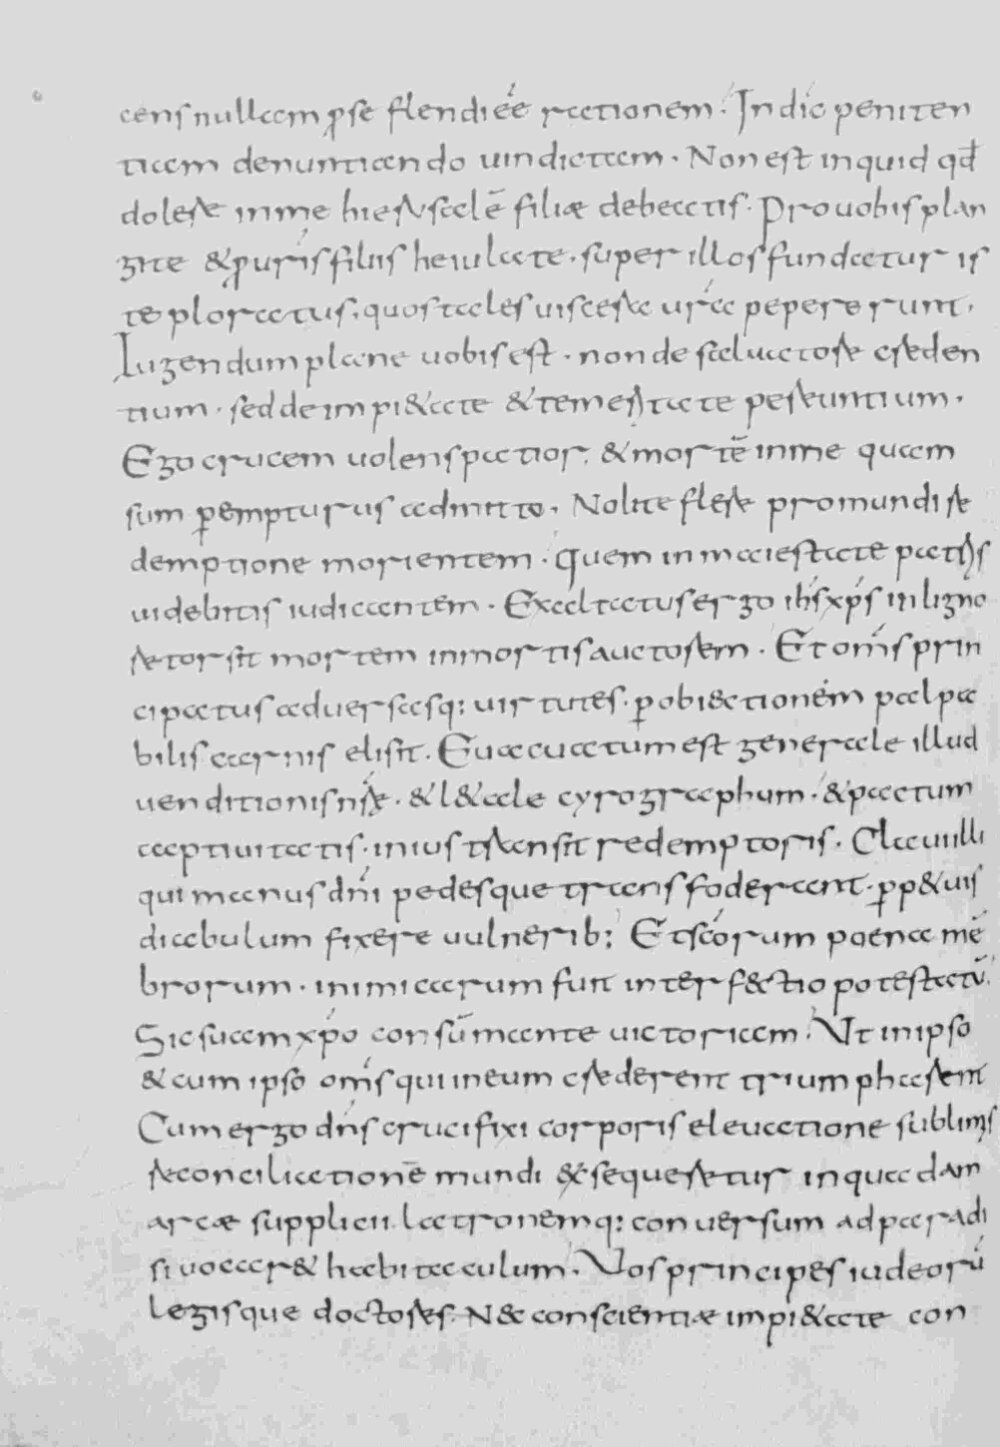 cens nullam p̱ se flendi ée̅ rationem. In dic peniten
tiam denuntiando uindictam. Non est inquid qđ
dolere in me hierusalē filiæ debeatis. Pro uobis plan
gite & p̱ uris filiis heiulate. super illos fundatur is
te ploratus. quos tales uiscera ura pepererunt.
Lugendum plane uobis est. non de saluatore creden
tium. sed de impi&ate & temeritate pereuntium.
Ego crucem uolens patior. & mortē in me quam
sum p̱empturus admitto. Nolite flere pro mundi re
demptione morientem. quem in maiestate patris
uidebitis iudicantem. Exaltatus ergo ih̄s xp̄s in ligno
retorsit mortem in mortis auctorem. Et om̄s prin
cipatus aduersasq; uirtutes. p̱ obi&ctionem palpa
bilis carnis elisit. Euacuatum est generale illud
uenditionis nr̄æ. & l&ale cyrographum. & pactum
captiuitatis. in ius transit redemptoris. Claui illi
qui manus dn̄i pedesque transfoderant. p̱p&uis
diabulum fixere uulnerib; Et sc̄orum poena mē
brorum. inimicarum fuit interf&ctio potestatū.
Sic suam xp̄o consūmante uictoriam. Vt in ipso
& cum ipso om̄s qui in eum crederent triumpharent
Cum ergo dn̄s crucifixi corporis eleuatione sublimis
reconciliationē mundi &sequeretur in quadam
arcæ supplicii. latronemq; conuersum ad paradi
si uocar& habitaculum. Vos principes iudeorū
legisque doctores. N&c conscientiæ impi&ate con